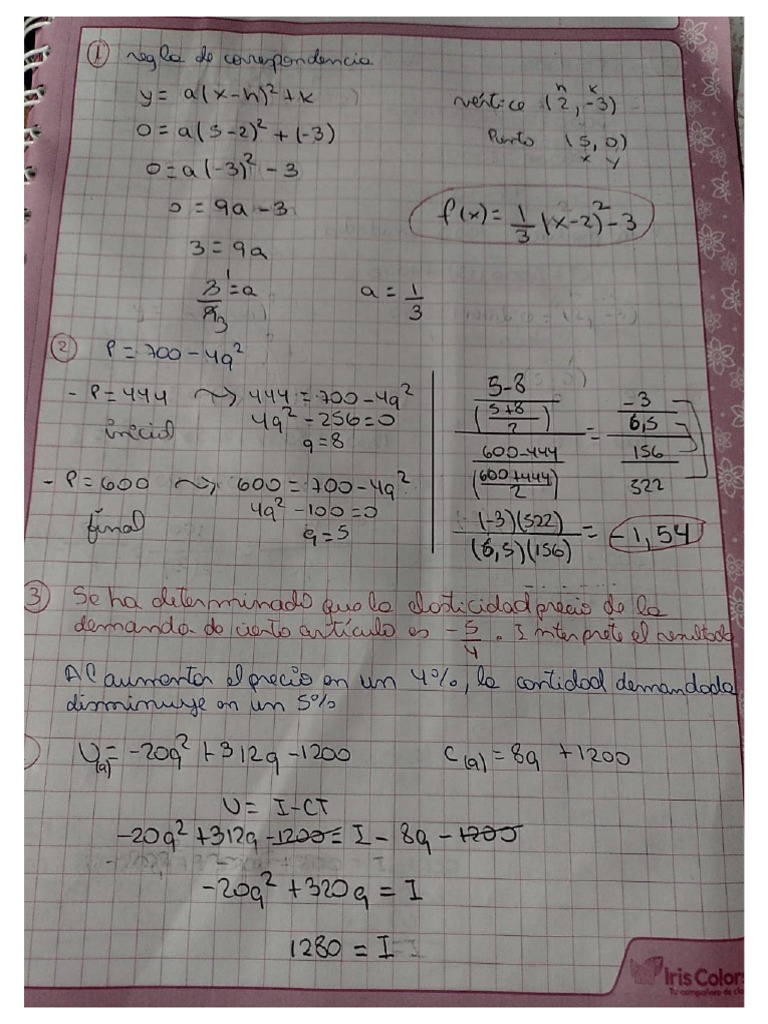 ① regla de correspondencia
y = a(x-h)² + k
0 = a(5-2)² + (-3)
0 = a(-3)² - 3
0 = 9a - 3
3 = 9a
3/9 = a
1
3
a = 1/3
h k
vértice (2, -3)
Punto (5, 0)
x y
f(x) = 1/3 (x-2)² - 3
② P = 700 - 4q²
- P = 444 ⇝ 444 = 700 - 4q²
inicial 4q² - 256 = 0
q = 8
- P = 600 ⇝ 600 = 700 - 4q²
final 4q² - 100 = 0
q = 5
5-8
(5+8/2)
600-444
(600+444/2)
=
-3
6,5
156
322
(-3)(522)/(6,5)(156) = -1,54
③ Se ha determinado que la elasticidad precio de la
demanda de cierto artículo es -5/4. Interprete el resultado
Al aumentar el precio en un 4%, la cantidad demandada
disminuye en un 5%
) U(q) = -20q² + 312q - 1200 C(q) = 8q + 1200
U = I - CT
-20q² + 312q - 1200 = I - 8q - 1200
-20q² + 320q = I
1280 = I
Iris Color
Tu compañero de cla